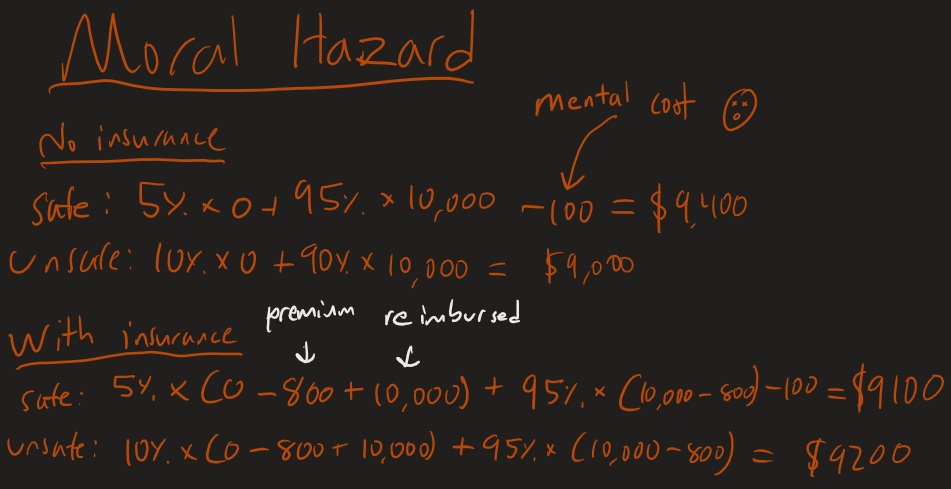 Moral Hazard
mental cost
No insurance
Safe: 5% × 0 + 95% × 10,000 - 100 = $9,400
Unsafe: 10% × 0 + 90% × 10,000 = $9,000
premium reimbursed
With insurance
safe: 5% × (0 - 800 + 10,000) + 95% × (10,000 - 800) - 100 = $9100
unsafe: 10% × (0 - 800 + 10,000) + 95% × (10,000 - 800) = $9200